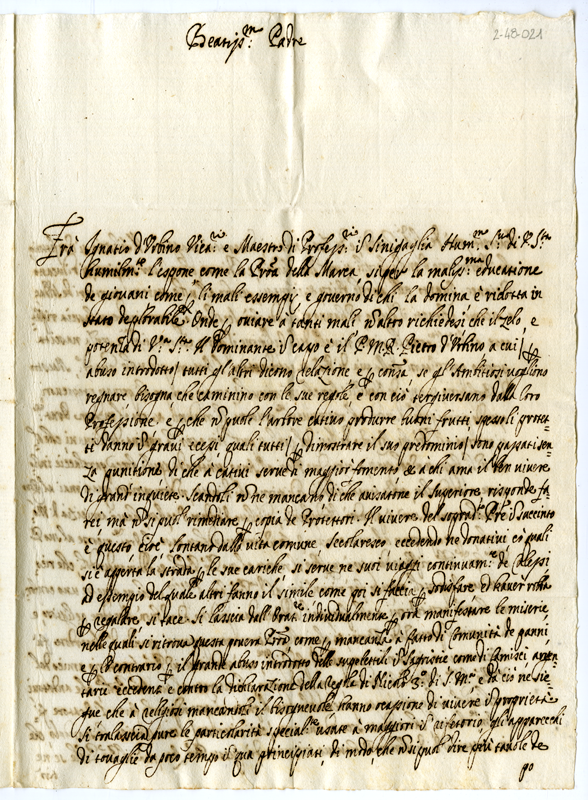 2-48-021
Beatiss.mo Padre
Frà Ignatio d'Urbino Vica.rio e Maestro di Profess.ri in Sinigaglia Hum.mo S.re di V. S.tà
humilm.te l'espone come la Pro.a della Marca, si per la maliss.ma educatione
de giovani come p li mali essempij, e governo di chi la domina è ridotta in
stato deplorabile. Onde p oviare a tanti mali n altro richiedesi che il zelo, e
potenza di V.ra S.tà. Il Dominante in capo è il P. M. R. Pietro d'Urbino a cui / p
abuso introdotto / tutti gl'altri dicono relazione e p cons.a se gl'Ambitiosi vogliono
regnare bisogna che caminino con le sue regole, e con ciò tergiversano dalla loro
Professione, e p che n puole l'arbore cativo produrre buoni frutti, spesso li protet=
ti danno in gravi ecessi quali tutti / p dimostrare il suo predominio / sono passati sen=
za punitione di che à cativi serve di maggior fomento & a chi ama il ben vivere
di grand' inquiete. Scandoli n ne mancano di che avisatone il Superiore risponde fa
rei ma n si puol rimediare p copia de Protettori. Il vivere del soprad.o Pre
è questo, cioè lontano dalla vita comune, secolaresco eccedendo ne donativi co quali
si è apperta la strada p le sue cariche si serve ne suoi viaggi continuam.te de Calessi
ad essempio del quale altri fanno il simile come poi si faccia p sodisfare, ed haver robba
p regalare si tace. Si lascia dall'Ora.re individualmente p ora manifestare le miserie
nelle quali si ritrova questa povera Pro.a come p mancanza affatto di Comunità de panni,
e p contrario p il grande abuso introdotto delle supeletili in Sagristie come di Camisci argen=
tarie eccedenti e contro la dichiarazione della regola di Nicolò 3.o di S. M.e, e da ciò ne sie
gue che à religiosi mancandosi il bisognevole hanno occasione di vivere in proprietà
si tralascia pure le particolarità special.te usate à maggiori in refetorio gli apparecchi
di tovaglie da poco tempo in qua principiati, di modo, che n si qual dire più tavole de
po